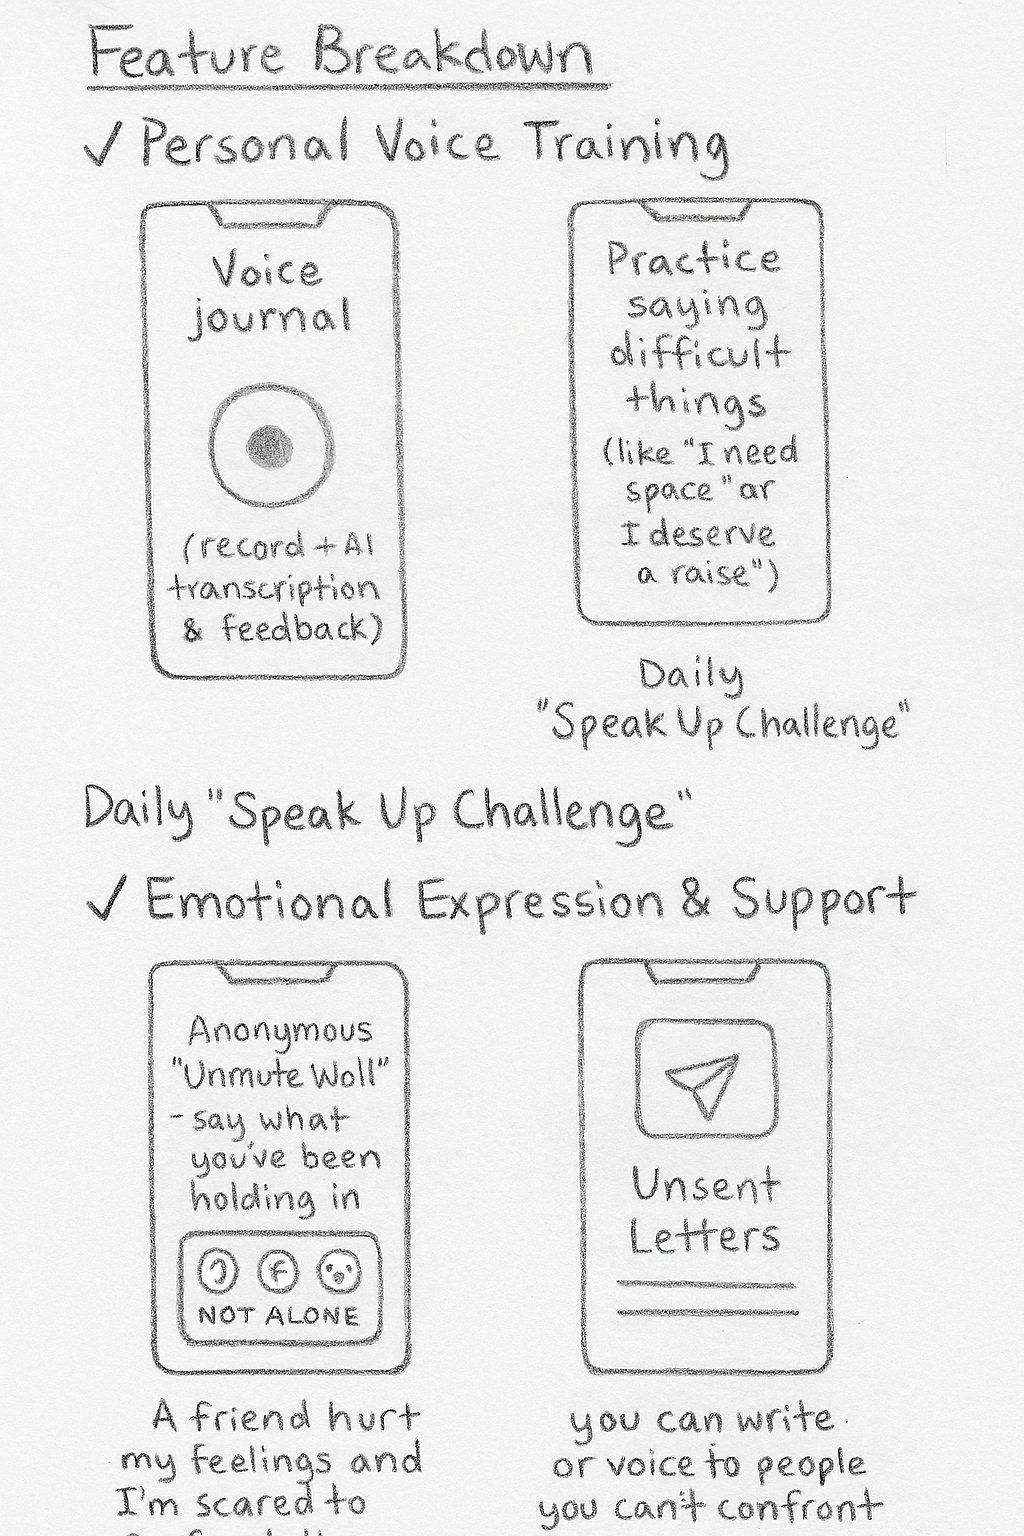 Feature Breakdown
✓ Personal Voice Training
Voice
journal
(record + AI
transcription
& feedback)
Practice
saying
difficult
things
(like "I need
space" ar
I deserve
a raise")
Daily
"Speak Up Challenge"
Daily "Speak Up Challenge"
✓ Emotional Expression & Support
Anonymous
"Unmute Woll"
- say what
you've been
holding in
NOT ALONE
A friend hurt
my feelings and
I'm scared to
Unsent
Letters
you can write
or voice to people
you can't confront